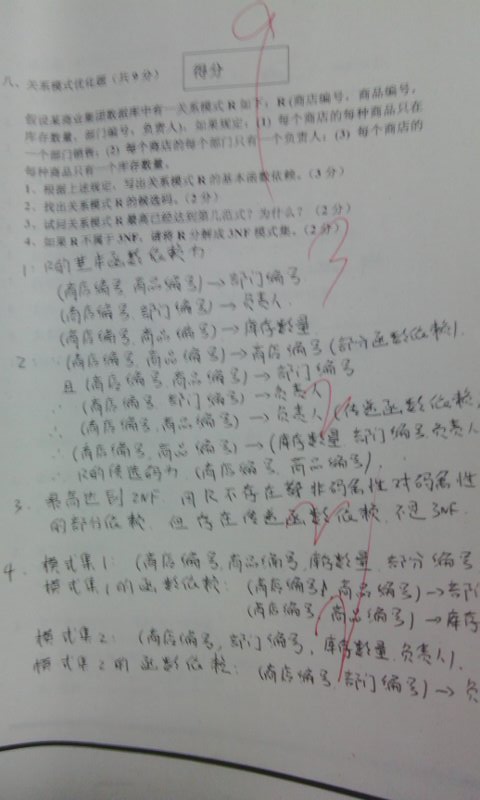 9
八、关系模式优化题（共9分）
得分
假设某商业集团数据库中有一关系模式R如下：R(商店编号，商品编号，
库存数量，部门编号，负责人)，如果规定：(1) 每个商店的每种商品只在
一个部门销售；(2) 每个商店的每个部门只有一个负责人；(3) 每个商店的
每种商品只有一个库存数量。
1、根据上述规定，写出关系模式R的基本函数依赖。(3分)
2、找出关系模式R的候选码。(2分)
3、试问关系模式R最高已经达到第几范式？为什么？（2分）
4、如果R不属于3NF，请将R分解成3NF模式集。（2分）
3
1. R的基本函数依赖为
(商店编号，商品编号)→部门编号
(商店编号，部门编号)→负责人.
(商店编号，商品编号)→库存数量
2. ∵(商店编号，商品编号)→商店编号(部分函数依赖).
且(商店编号，商品编号)→部门编号
∴(商店编号，部门编号)→负责人
∴(商店编号，商品编号)→负责人(传递函数依赖
∴(商店编号，商品编号)→(库存数量 部门编号 负责人
∴R的候选码为(商店编号，商品编号).
2
3. 最高达到2NF. 因R不存在 非码属性对码属性
的部分依赖，但存在传递函数依赖，不是3NF.
2
4. 模式集1：(商店编号,商品编号,库存数量,部分编号
模式集1的函数依赖：(商店编号，商品编号)→部门
(商店编号，商品编号)→库存
模式集2：(商店编号，部门编号，库存数量,负责人).
模式集2的函数依赖：(商店编号，部门编号)→负